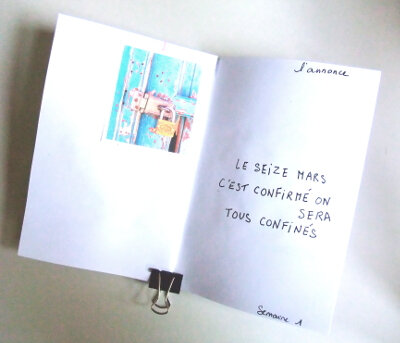 l'annonce
LE SEIZE MARS
C'EST CONFIRMÉ ON
SERA
TOUS CONFINÉS
Semaine 1